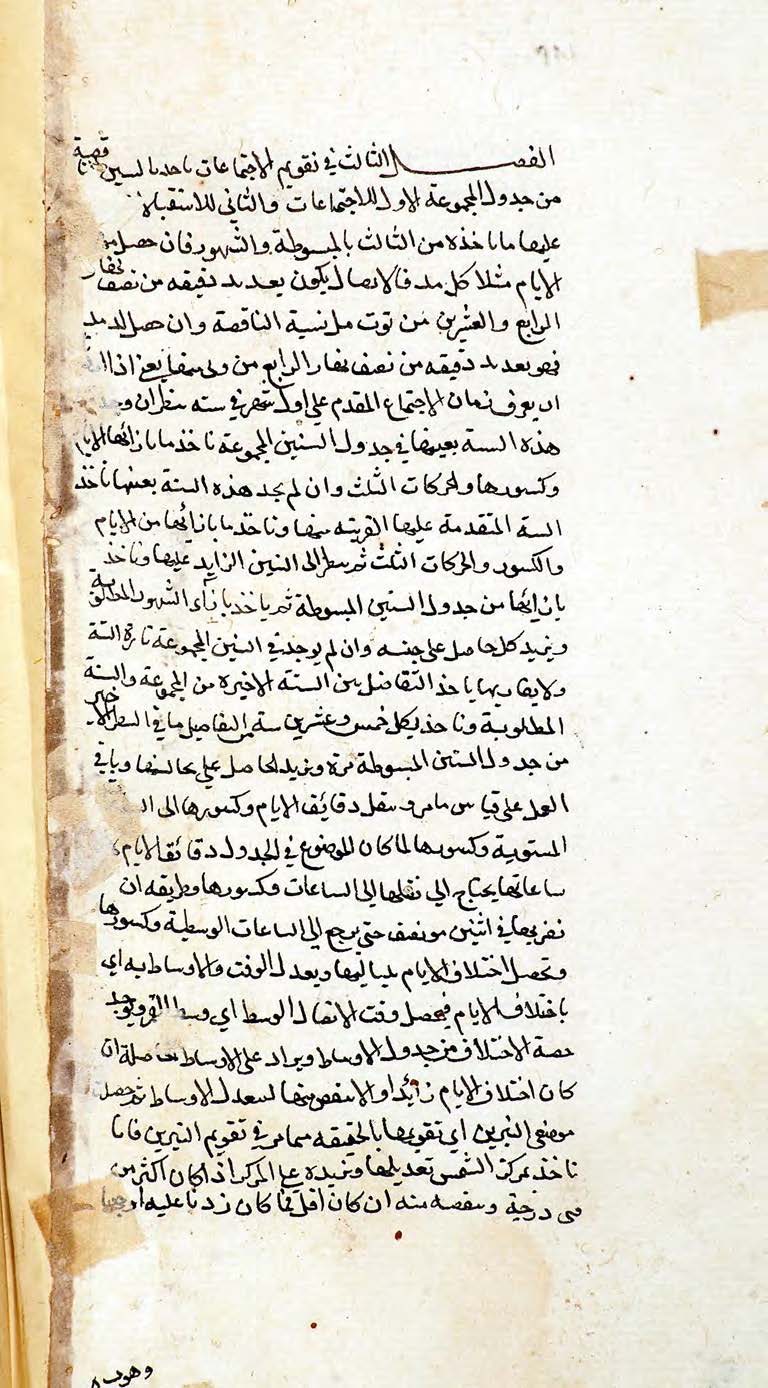 الفصل الثالث في تقويم الاجتماعات ناخذ بالسنين
من جدول المجموعة الاول للاجتماعات والثاني للاستقبلا
عليها ما ناخذه من الثالث بالمبسوطة والشهور فان حصل من
الايام مثلا كل مد فالاتصال يكون بعد ىد دقيقه من نصف نهار
الرابع والعشرين من توت من نسية الناقصة وان حصل
فهو بعد ىد دقيقه من نصف نهار الرابع من يعني اذا
ان يعرف زمان الاجتماع المقدم على اول شهر في سنه ننظر ان وجد
هذه السنة بعينها في جدول السنين المجموعة ناخذ ما بازائها الايام
وكسورها والحركات الثلث وان لم يجد هذه السنة بعينها ناخذ
السنة المتقدمة عليها القريبه منها وناخذ ما بازائها من الايام
والكسور والحركات الثلث ثم ننظر الى السنين الزايد عليها وناخذ
بازائها من جدول السنين المبسوطة ثم ياخذ بازاء الشهور المطلوبة
ويزيد كل حاصل على جنسه وان لم يوجد في السنين المجموعة تارة السنة
ولا يقاربها ياخذ التفاضل بين السنة الاخيرة من المجموعة والسنة
المطلوبة وناخذ بكل خمس وعشرين سنة من التفاضل ما في السطر الاخير
من جدول السنين المبسوطة مرة ونزيد الحاصل على مجالسها وباقي
العمل على قياس ما مر وننقل دقائق الايام وكسورها الى
المستوية وكسورها لما كان الموضوع في الجدول دقائق الايام
ساعاتها يحتاج الى نقلها الى الساعات وكسورها وطريقه ان
نضربها في اثنين ونصف حتى يرجع الى الساعات الوسطية وكسورها
وتحصل اختلاف الايام بلياليها ويعدل الوقت والاوساط به اي
باختلاف الايام فيحصل وقت الاتصال الوسط اي وسط ويوجد
حصة الاختلاف من جدول الاوساط ويزاد على الاوساط حاصلة ان
كان اختلاف الايام زائدا والا ينقص منها لتعدل الاوساط ثم يحصل
موضعي النيرين اي تقويمها بالحقيقه مما مر في تقويم النيرين فانا
ناخذ بمركز الشمس تعديلها ونزيده على المركز اذا كان اكثر من
درجة وننقصه منه ان كان اقل فما كان زدنا عليه اوجها
وهوب